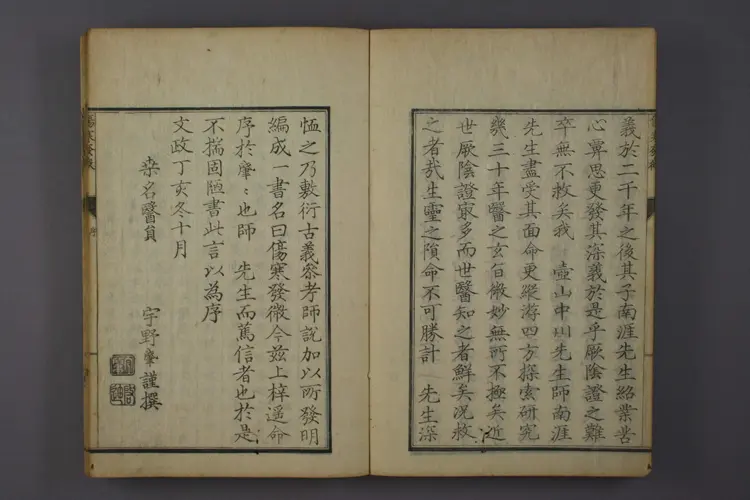 義於二千年之後其子南涯先生紹業苦
心覃思更發其深義於是乎厥陰證之難
卒無不救矣我　壺山中川先生師南涯
先生盡受其面命更縱游四方探索研究
幾三十年醫之玄旨微妙無所不極矣近
世厥陰證最多而世醫知之者鮮矣况救
之者哉生靈之隕命不可勝計　先生深
恤之乃敷衍古義參考師說加以所發明
編成一書名曰傷寒發微今茲上梓遥命
序於肇〻也師　先生而篤信者也於是
不揣固陋書此言以為序
文政丁亥冬十月
桒名醫員　宇野肇謹撰